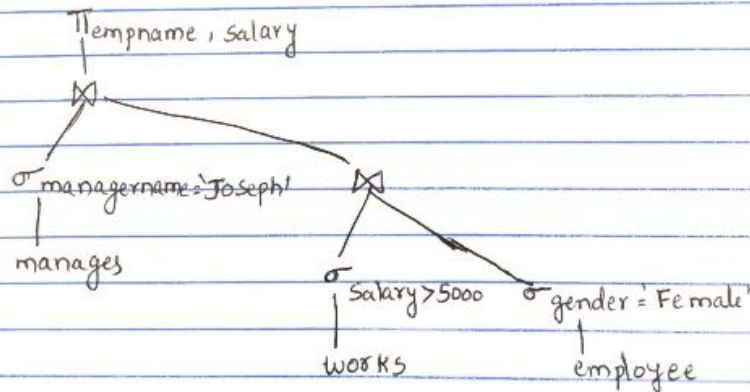 Π empname, salary
⋈
σ managername='Joseph' ⋈
manages
σ Salary>5000 σ gender='Female'
works employee